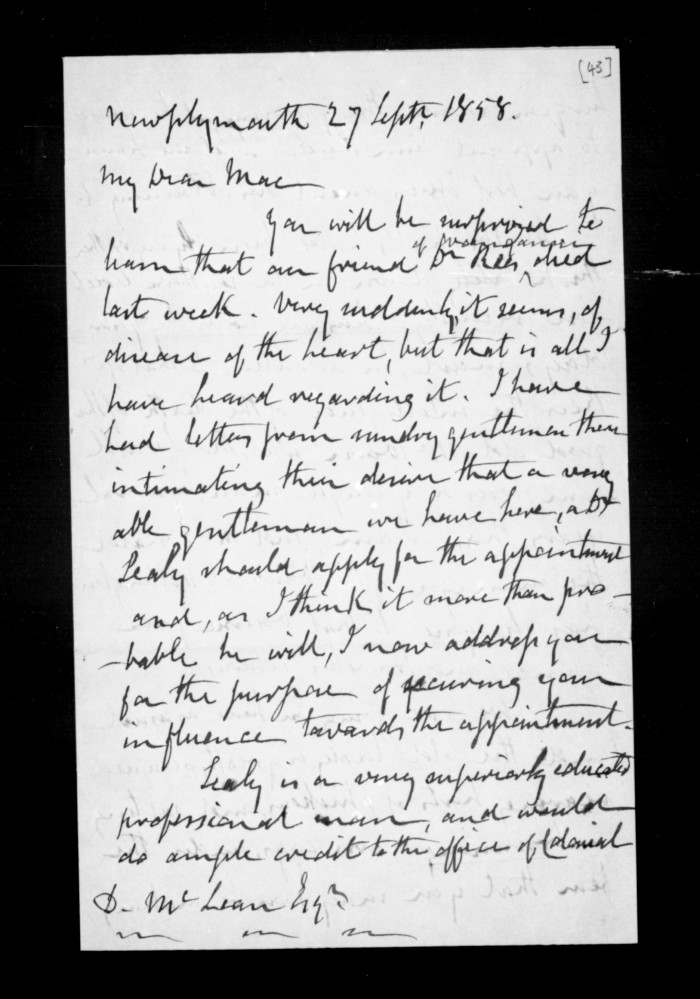 [43]
Newplymouth 27 Septr. 1858.
My Dear Mac
You will be surprized to
of Wanganui
learn that our friend Dr Rees, died
last week. Very suddenly, it seems, of
disease of the heart, but that is all I
have heard regarding it. I have
had letters from sundry gentlemen there
intimating their desire that a very
able gentleman we have here, a Dr
Sealy should apply for the appointment
and, as I think it more than pro-
-bable he will, I now address you
for the purpose of securing your
influence towards the appointment.
Sealy is a very superiorly educated
professional man, and would
do ample credit to the office of Colonial
D. McLean Esqr.